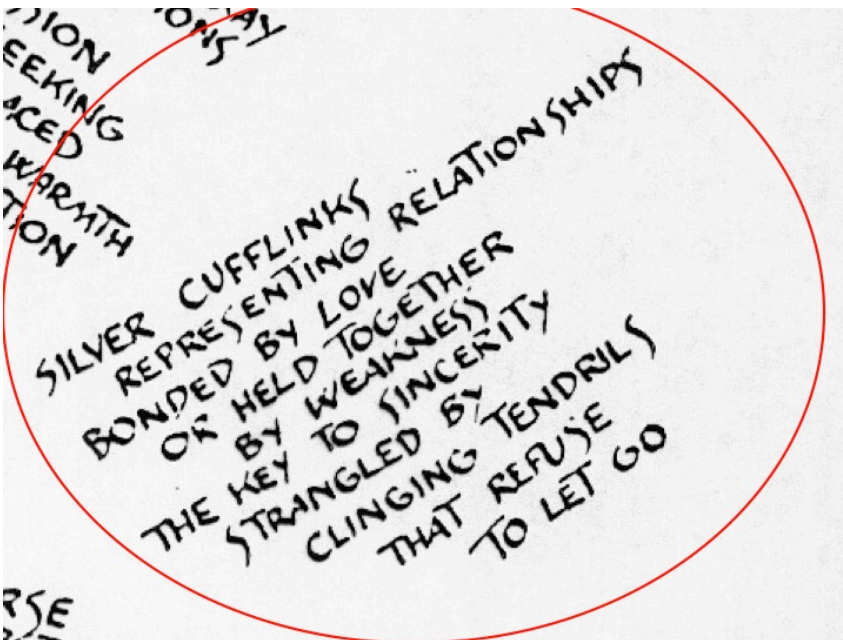 SION
EEKING
ACED
WARMTH
TION
SILVER CUFFLINKS
REPRESENTING RELATIONSHIPS
BONDED BY LOVE
OR HELD TOGETHER
BY WEAKNESS
THE KEY TO SINCERITY
STRANGLED BY
CLINGING TENDRILS
THAT REFUSE
TO LET GO
RSE